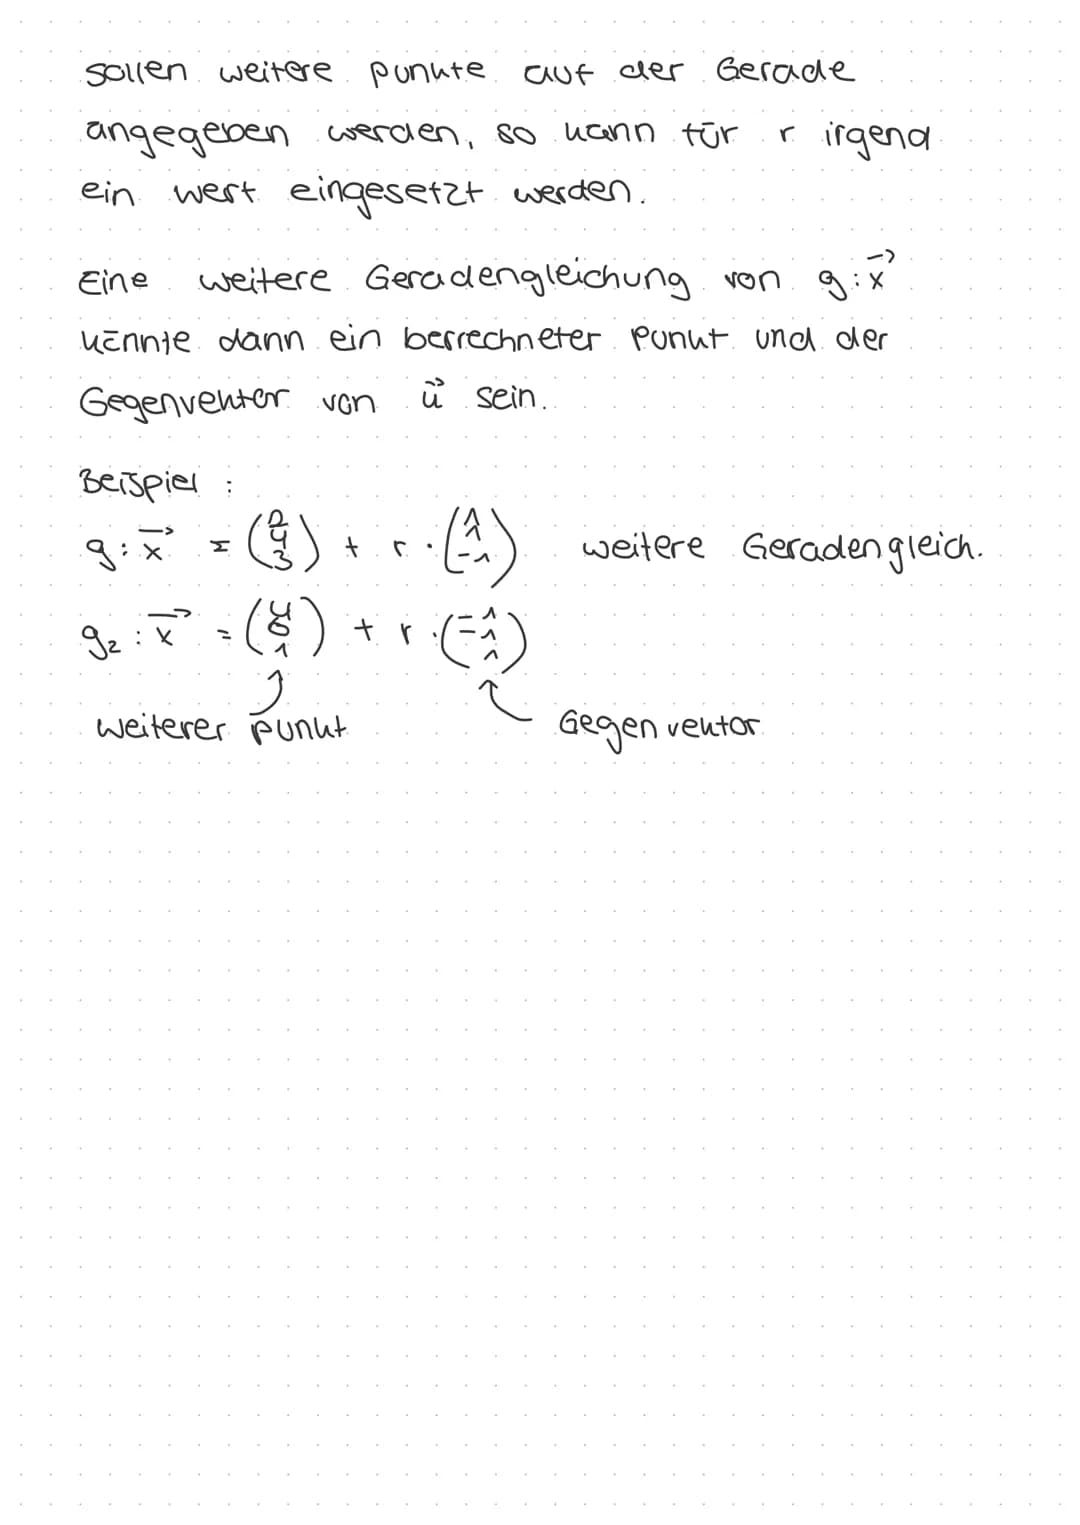 sollen weitere punkte auf der Gerade
angegeben werden, so kann für r irgend
ein wert eingesetzt werden.
Eine weitere Geradengleichung von g: x⃗
könnte dann ein berrechneter Punkt und der
Gegenvektor von u⃗ sein.
Beispiel :
g: x⃗ = (2 4 3) + r · (1 1 -1) weitere Geradengleich.
g₂ : x⃗ = (4 6 1) + r · (-1 -1 1)
weiterer punkt Gegenvektor